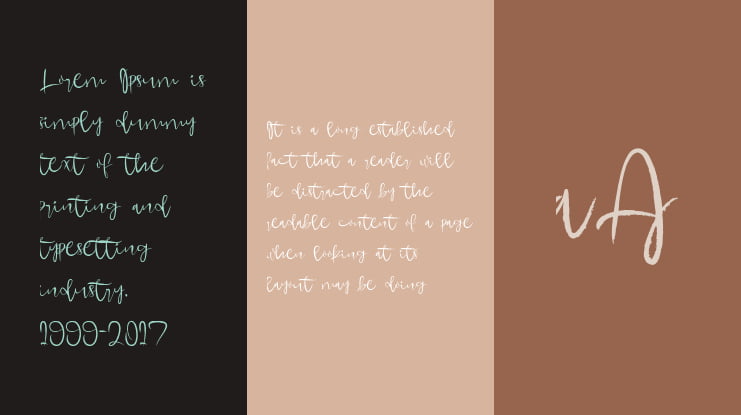 Lorem Ipsum is
simply dummy
text of the
printing and
typesetting
industry.
1999-2017
It is a long established
fact that a reader will
be distracted by the
readable content of a page
when looking at its
layout may be doing
A